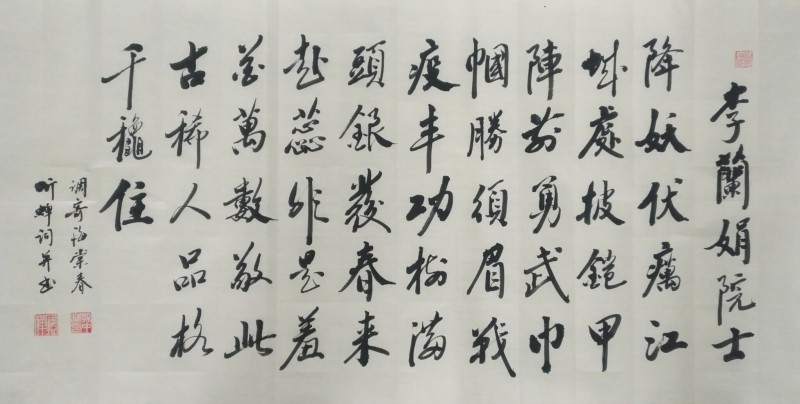 李蘭娟院士
降妖伏癘江
城處披鎧甲
陣前勇武巾
幗勝須眉戰
疫丰功樹滿
頭銀發春来
蕊是羞
花萬數敬此
古稀人品格
千龝住
调寄海棠春
听蝉词并书